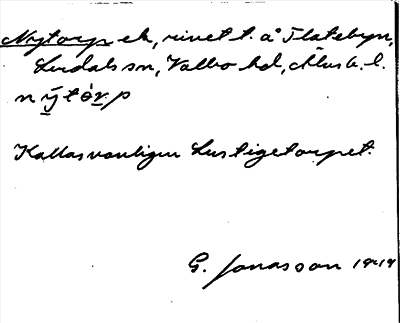 Nytorp eh, rivet t. å Flatebyn,
Lerdals sn, Valbo hd, Älvsb. l.
n ȳ t ò r. p
Kallas vanligen Lustigetorpet.
G. Jonasson 1919